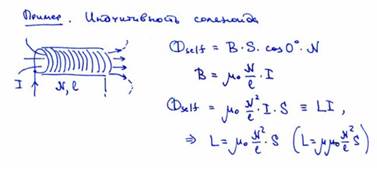 Пример. Индуктивность соленоида
Φself = B · S · cos 0° · N
B = μ₀ N/ℓ · I
I N, ℓ
Φself = μ₀ N²/ℓ · I · S ≡ LI ,
⇒ L = μ₀ N²/ℓ · S (L = μμ₀ N²/ℓ S)